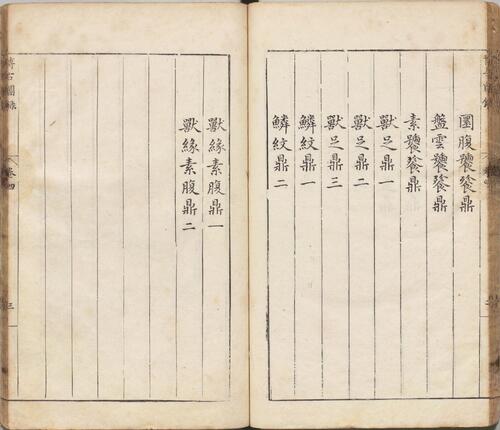 圜腹饕餮鼎
盤雲饕餮鼎
素饕餮鼎
獸足鼎一
獸足鼎二
獸足鼎三
鱗紋鼎一
鱗紋鼎二
獸緣素腹鼎一
獸緣素腹鼎二
博古圖錄
卷四
三